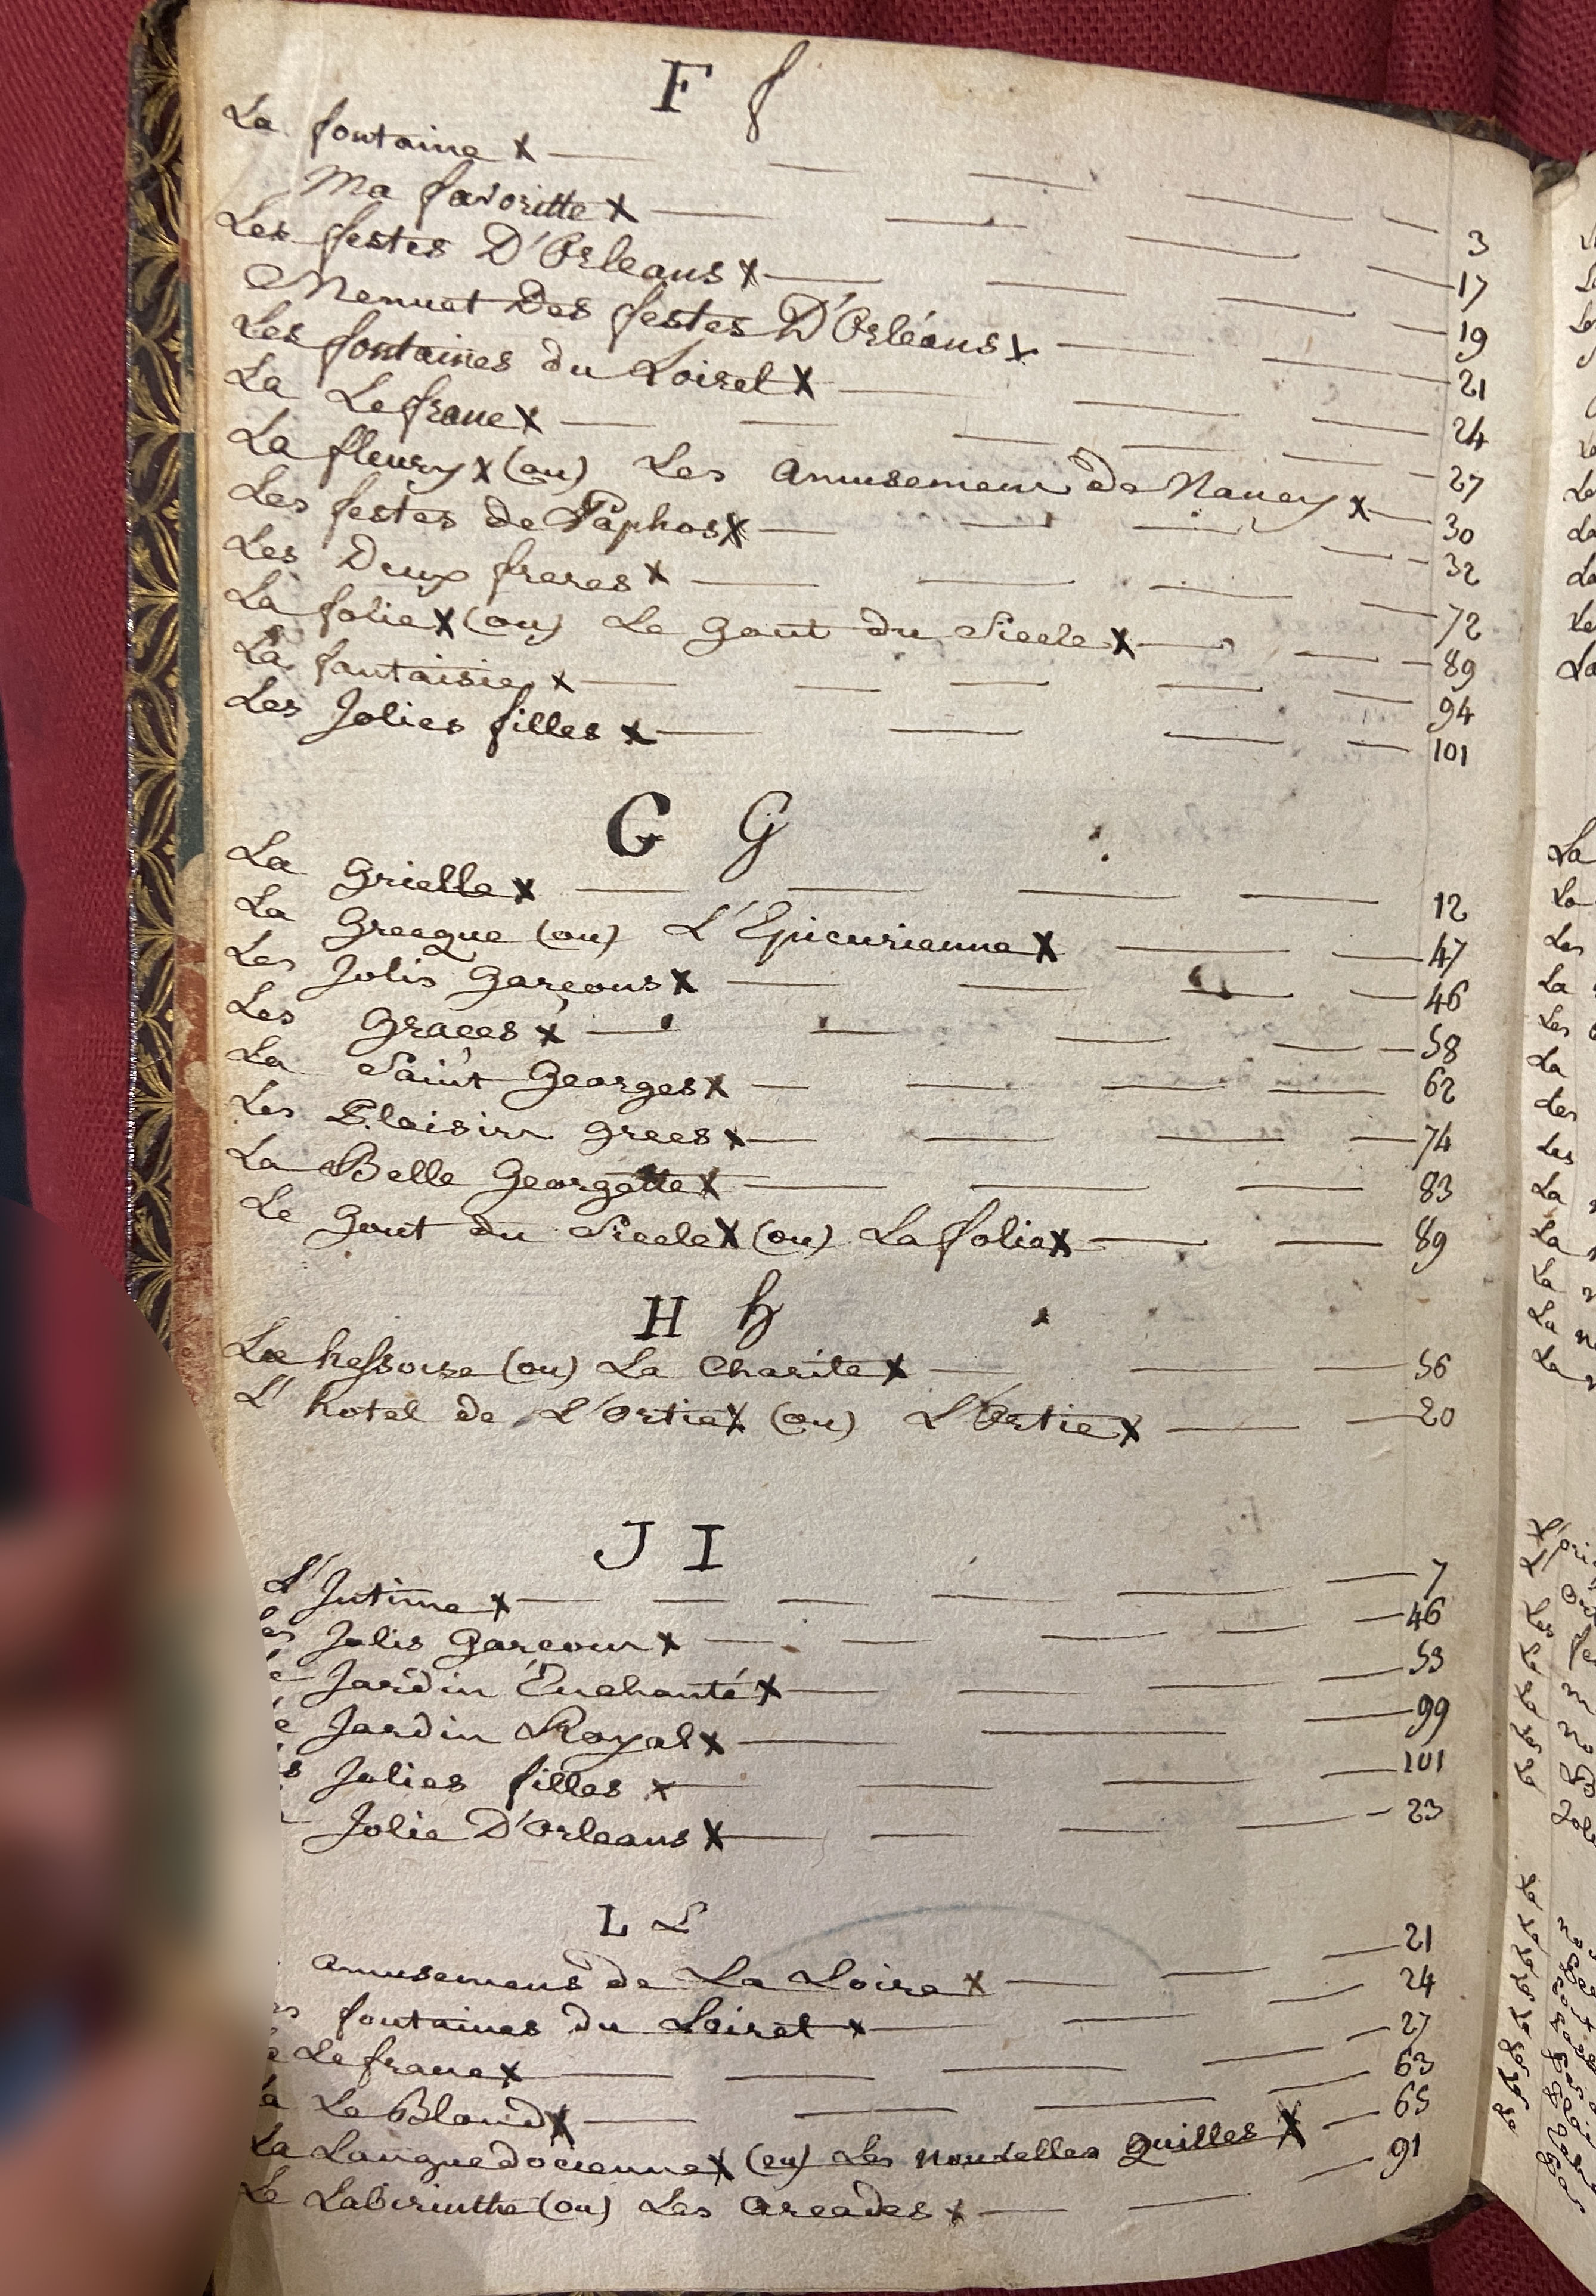 F f
La fontaine x 3
Ma favoritte x 17
Les festes D'Orleans x 19
Menuet Des festes D'Orléans x 21
Les fontaines du Loiret x 24
La Lefranc x 27
La fleury x (ou) Les amusemens de Nancy x 30
Les festes de Paphos x 32
Les Deux freres x 72
La folie x (ou) Le gout du Siecle x 89
La fantaisie x 94
Les Jolies filles x 101
G G
La grielle x 12
La grecque (ou) L'Epicurienne x 47
Les Jolis garçons x 46
Les graces x 58
La Saint georges x 62
Les Plaisirs grecs x 74
La Belle georgette x 83
Le gout du Siecle x (ou) La folie x 89
H h
La hessoise (ou) La Charite x 56
L'hotel de L'ortie x (ou) L'Ortie x 20
J I
L'Intime x 7
es Jolis garçons x 46
e Jardin Enchanté x 53
e Jardin Royal x 99
s Jolies filles x 101
Jolie D'orleans x 23
L L
amusemens de La Loire x 21
es fontaines du Loiret x 24
a Lefranc x 27
a Le Blond x 63
La Languedocienne x (ou) Les nouvelles Quilles x 65
Le Labirinthe (ou) Les arcades x 91